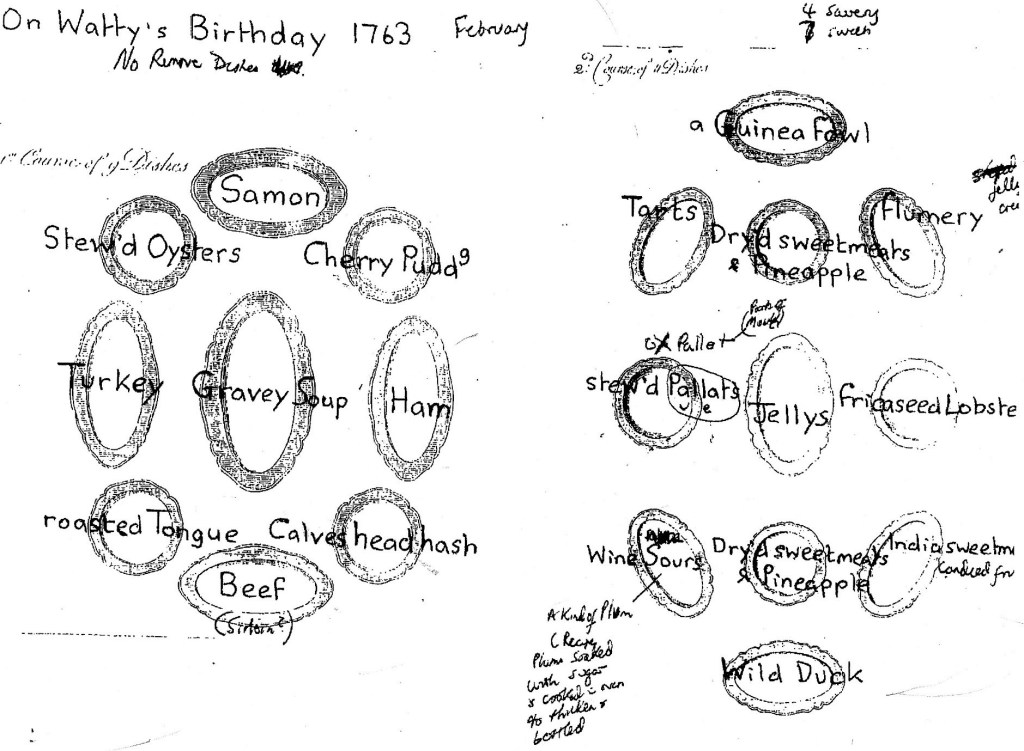 On Watty's Birthday 1763 February
No Remove Dishes
1st Course of 9 Dishes
Samon
Stew'd Oysters
Cherry Pudd g
Turkey
Gravey Soup
Ham
roasted Tongue
Calves head hash
Beef
(Sirloin)
4 Savery
7 sweet
2d Course of 11 Dishes
a Guinea Fowl
Tarts
Dry'd sweetmeats
& Pineapple
Flumery
jelly
Roof of
Mouth
ox Pallet
stew'd Pallats
e
Jellys
fricaseed Lobste
Wine Sours
Dry'd sweetmeats
& Pineapple
India sweetm
Candied fr
A Kind of Plum
(Recipe
Plums soaked
with sugar
& cooked in oven
to thicken &
bottled
Wild Duck